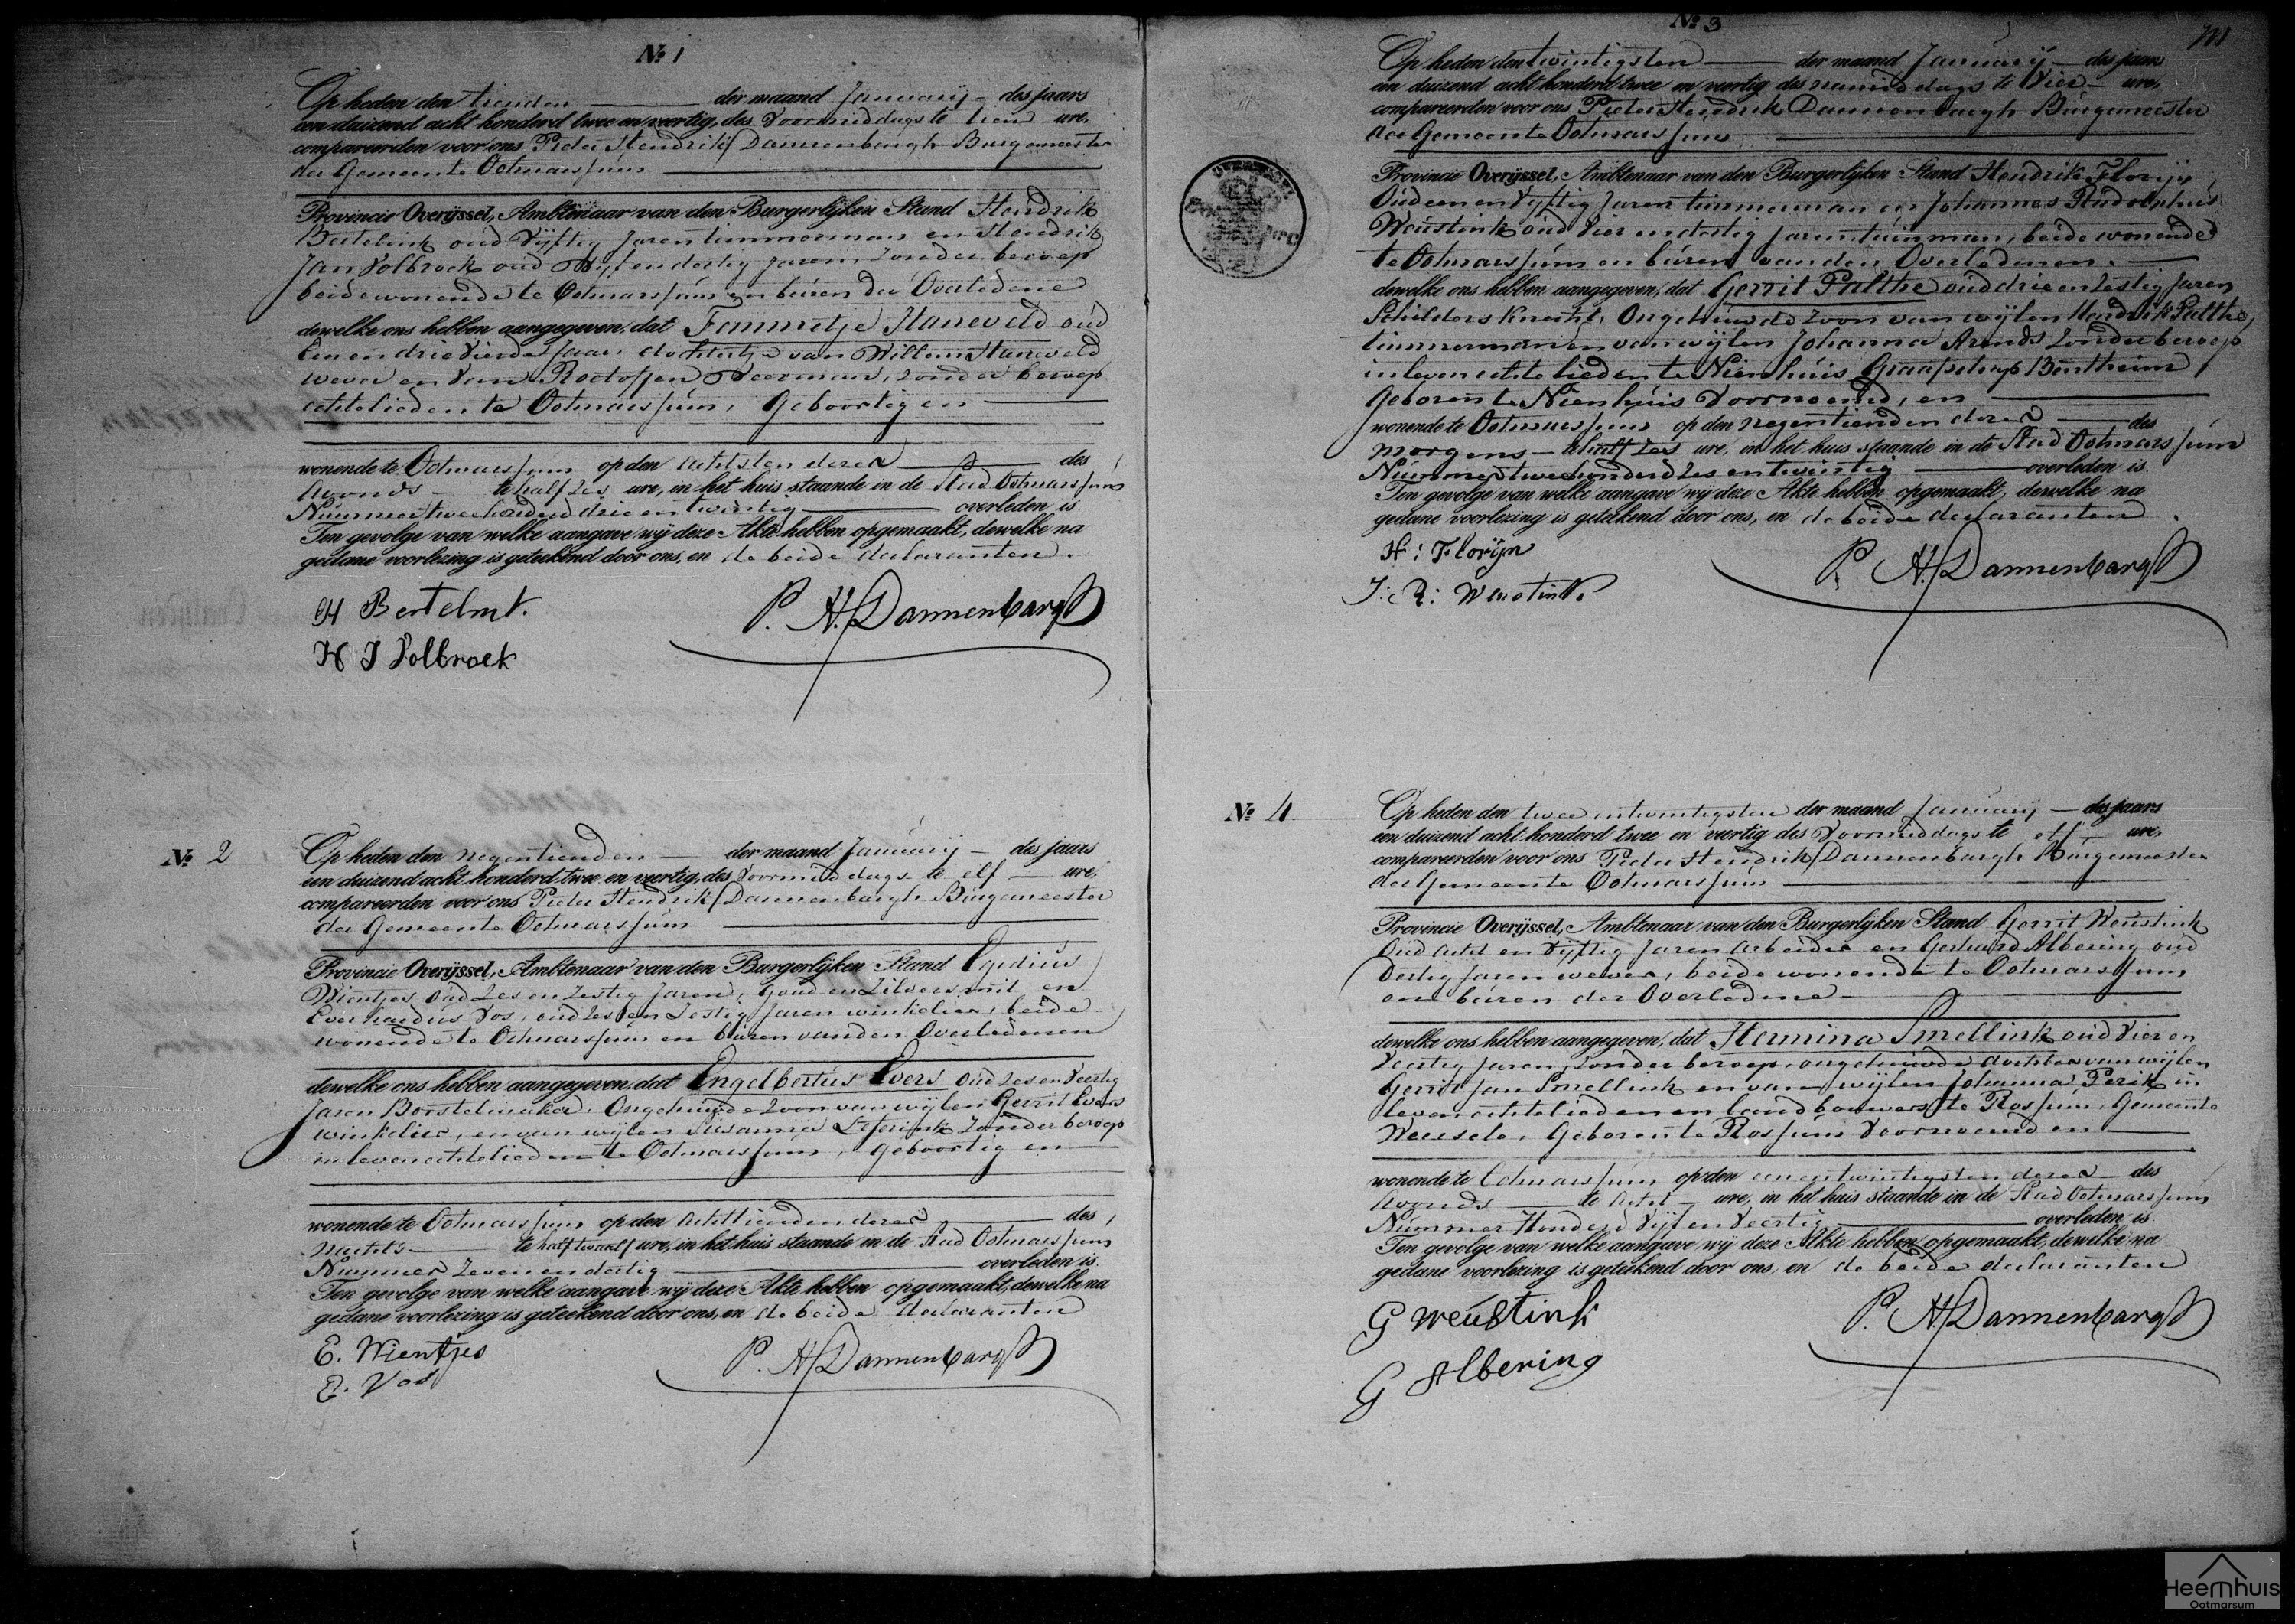 № 1
Op heden den tienden der maand Januarij des jaars
een duizend acht honderd twee en veertig, des Voormiddags te tien ure,
compareerden voor ons Pieter Hendrik Dannenbargh Burgemeester
der Gemeente Ootmarssum
Provincie Overijssel, Ambtenaar van den Burgerlijken Stand Hendrik
Bertelink oud Vijftig Jaren timmerman en Hendrik
Jan Volbroek oud Vijfendertig Jaren Zonder beroep
beide wonende te Ootmarssum en buren der Overledene
dewelke ons hebben aangegeven, dat Femmetje Haneveld oud
Een en drie Vierde Jaar dochtertje van Willem Haneveld
wever en van Veerman, zonder beroep
echtelieden te Ootmarssum, Geboortig en
wonende te Ootmarssum op den achtsten dezer des
Avonds te half Zes ure, in het huis staande in de Stad Ootmarssum
Nummer twee honderd drie en twintig overleden is.
Ten gevolge van welke aangave wij deze Akte hebben opgemaakt, dewelke na
gedane voorlezing is geteekend door ons, en de beide declaranten.
H Bertelink
H J Volbroek
P. H. Dannenbargh
№ 2
Op heden den negentienden der maand Januarij des jaars
een duizend acht honderd twee en veertig, des Voormiddags te elf ure,
compareerden voor ons Pieter Hendrik Dannenbargh Burgemeester
der Gemeente Ootmarssum
Provincie Overijssel, Ambtenaar van den Burgerlijken Stand Egidius
Wientjes, Oud Zes en Zestig Jaren, Goud en Zilversmit en
Everhardus Vos, oud Zes en Zestig Jaren winkelier, beide
wonende te Ootmarssum en buren van den Overledenen
dewelke ons hebben aangegeven, dat Engelbertus Evers Oud Zes en Veertig
Jaren Borstelmaker, Ongehuwde Zoon van wijlen Gerrit Evers
winkelier, en van wijlen Susanna Zonder beroep
in leven echtelieden te Ootmarssum, Geboortig en
wonende te Ootmarssum op den Achttienden dezer des
Nachts te half twaalf ure, in het huis staande in de Stad Ootmarssum
Nummer Zevenendertig overleden is.
Ten gevolge van welke aangave wij deze Akte hebben opgemaakt, dewelke na
gedane voorlezing is geteekend door ons, en de beide declaranten
E. Wientjes
E. Vos
P. H. Dannenbargh
№ 3
Op heden den twintigsten der maand Januarij des jaars
een duizend acht honderd twee en veertig des namiddags te Vier ure,
compareerden voor ons Pieter Hendrik Dannenbargh Burgemeester
der Gemeente Ootmarssum
Provincie Overijssel, Ambtenaar van den Burgerlijken Stand Hendrik Florijn
Oud een en Vijftig Jaren timmerman en Johannes Rudolphus
Weustink oud Vier en dertig Jaren tuinman, beide wonende
te Ootmarssum en buren van den Overledenen.
dewelke ons hebben aangegeven, dat Gerrit Palthe oud drie en Zestig Jaren
Schilders Knecht, Ongehuwde Zoon van wijlen Hendrik Palthe,
timmerman en van wijlen Johanna Arends Zonder beroep
in leven echtelieden te Nienhuis Graafschap Bentheim,
Geboren te Nienhuis Voornoemd, en
wonende te Ootmarssum op den negentienden dezer des
morgens te half Zes ure, in het huis staande in de Stad Ootmarssum
Nummer twee honderd Zes en twintig overleden is.
Ten gevolge van welke aangave wij deze Akte hebben opgemaakt, dewelke na
gedane voorlezing is geteekend door ons, en de beide declaranten.
H: Florijn
J: R: Weustink
P. H. Dannenbargh
№ 4
Op heden den twee entwintigsten der maand Januarij des jaars
een duizend acht honderd twee en veertig des Voormiddags te elf ure,
compareerden voor ons Pieter Hendrik Dannenbargh Burgemeester
der Gemeente Ootmarssum
Provincie Overijssel, Ambtenaar van den Burgerlijken Stand Gerrit Weustink
Oud acht en Vijftig Jaren Arbeider en Gerhard Albering oud
dertig Jaren wever, beide wonende te Ootmarssum
en buren der Overledene
dewelke ons hebben aangegeven, dat Hermina Smellink oud Vier en
Veertig Jaren, Zonder beroep, ongehuwde dochter van wijlen
Gerrit Jan Smellink en van wijlen Johanna Perik in
leven echtelieden en landbouwers te Rossum Gemeente
Weerselo, Geboren te Rossum Voornoemd en
wonende te Ootmarssum op den eenentwintigsten dezer des
Avonds te Acht ure, in het huis staande in de Stad Ootmarssum
Nummer Honderd Vijf en Veertig overleden is.
Ten gevolge van welke aangave wij deze Akte hebben opgemaakt, dewelke na
gedane voorlezing is geteekend door ons, en de beide declaranten
G Weustink
G Albering
P. H. Dannenbargh
Heemhuis
Ootmarsum